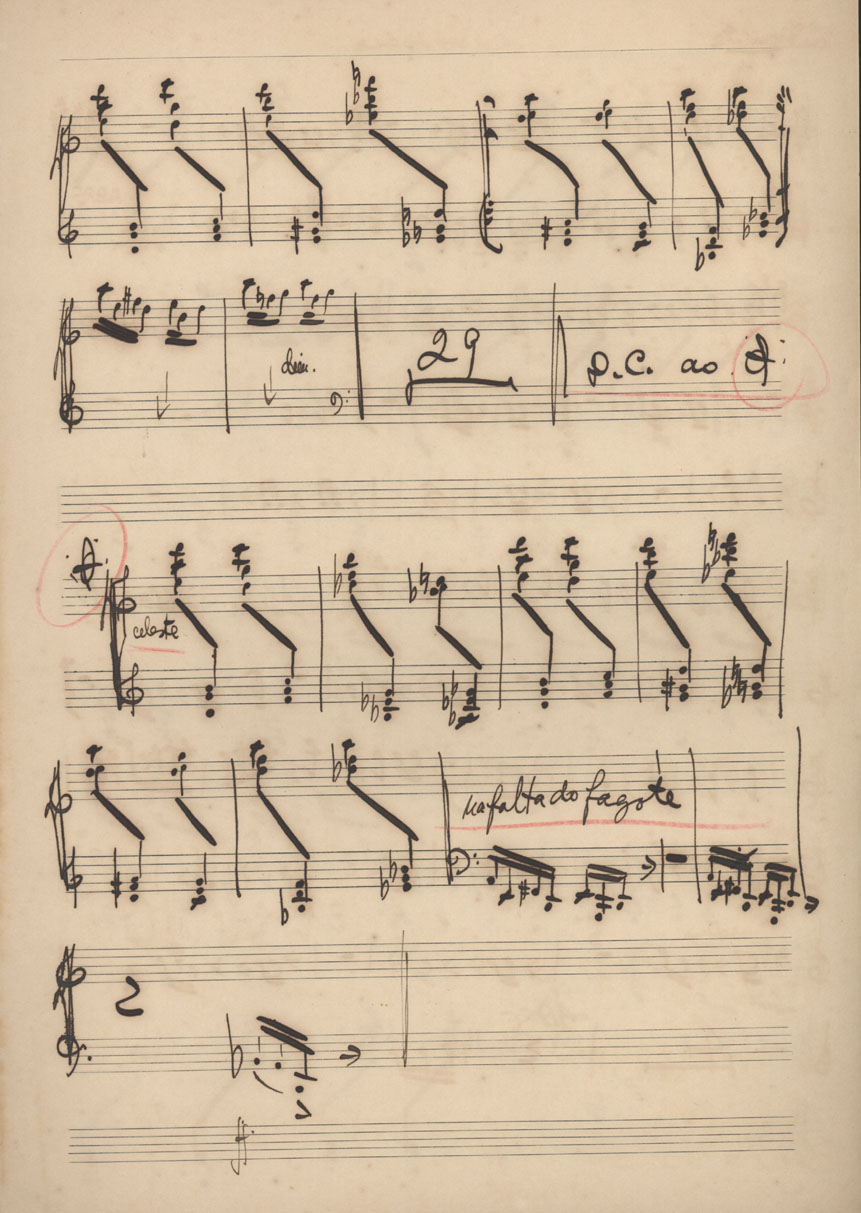 dim.
29
D.C. ao
celeste
na falta do fagote
2
ff